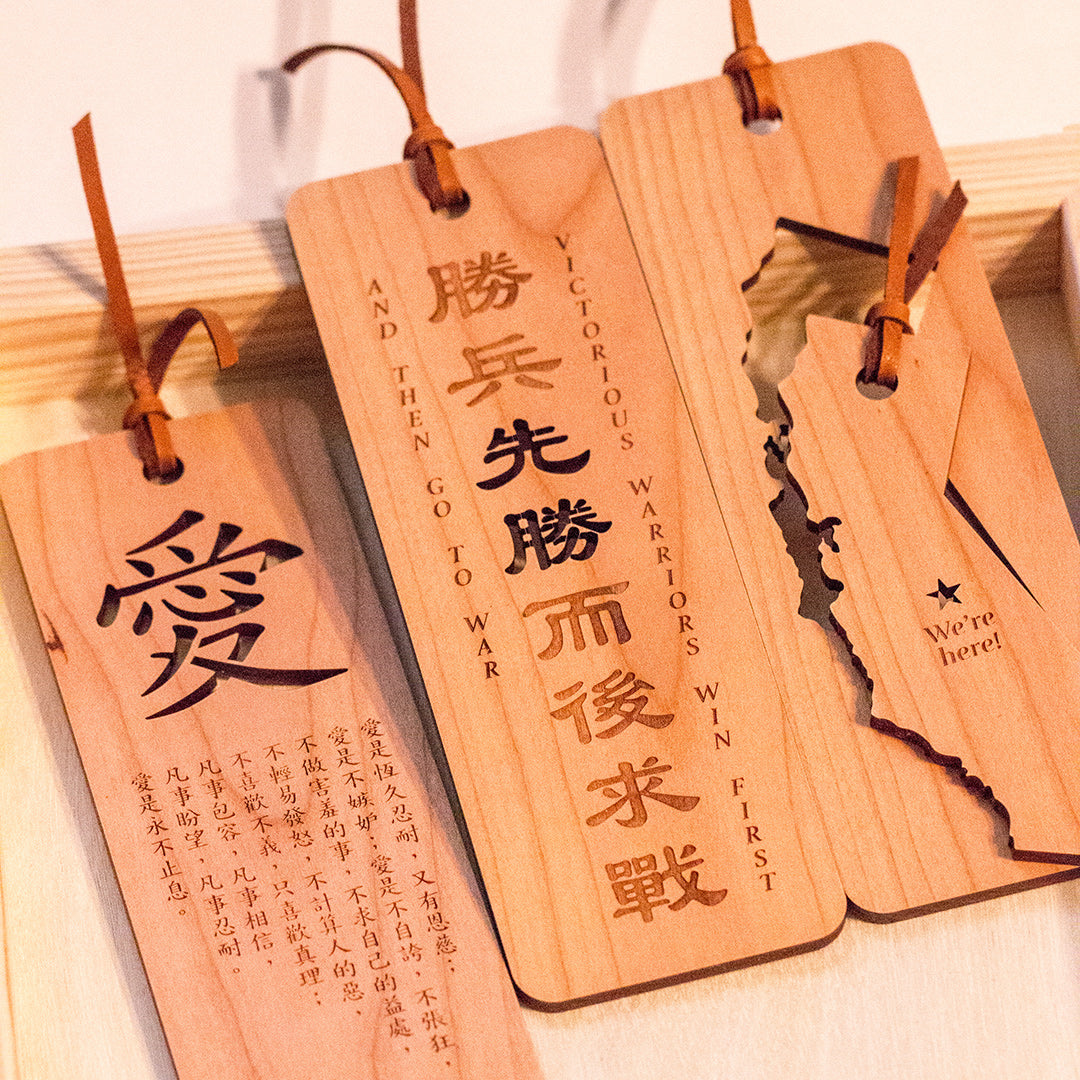 愛
愛是恆久忍耐，又有恩慈；
愛是不嫉妒；愛是不自誇，不張狂，
不做害羞的事，不求自己的益處，
不輕易發怒，不計算人的惡，
不喜歡不義，只喜歡真理；
凡事包容，凡事相信，
凡事盼望，凡事忍耐。
愛是永不止息。
勝兵先勝而後求戰
VICTORIOUS WARRIORS WIN FIRST
AND THEN GO TO WAR
We're
here!